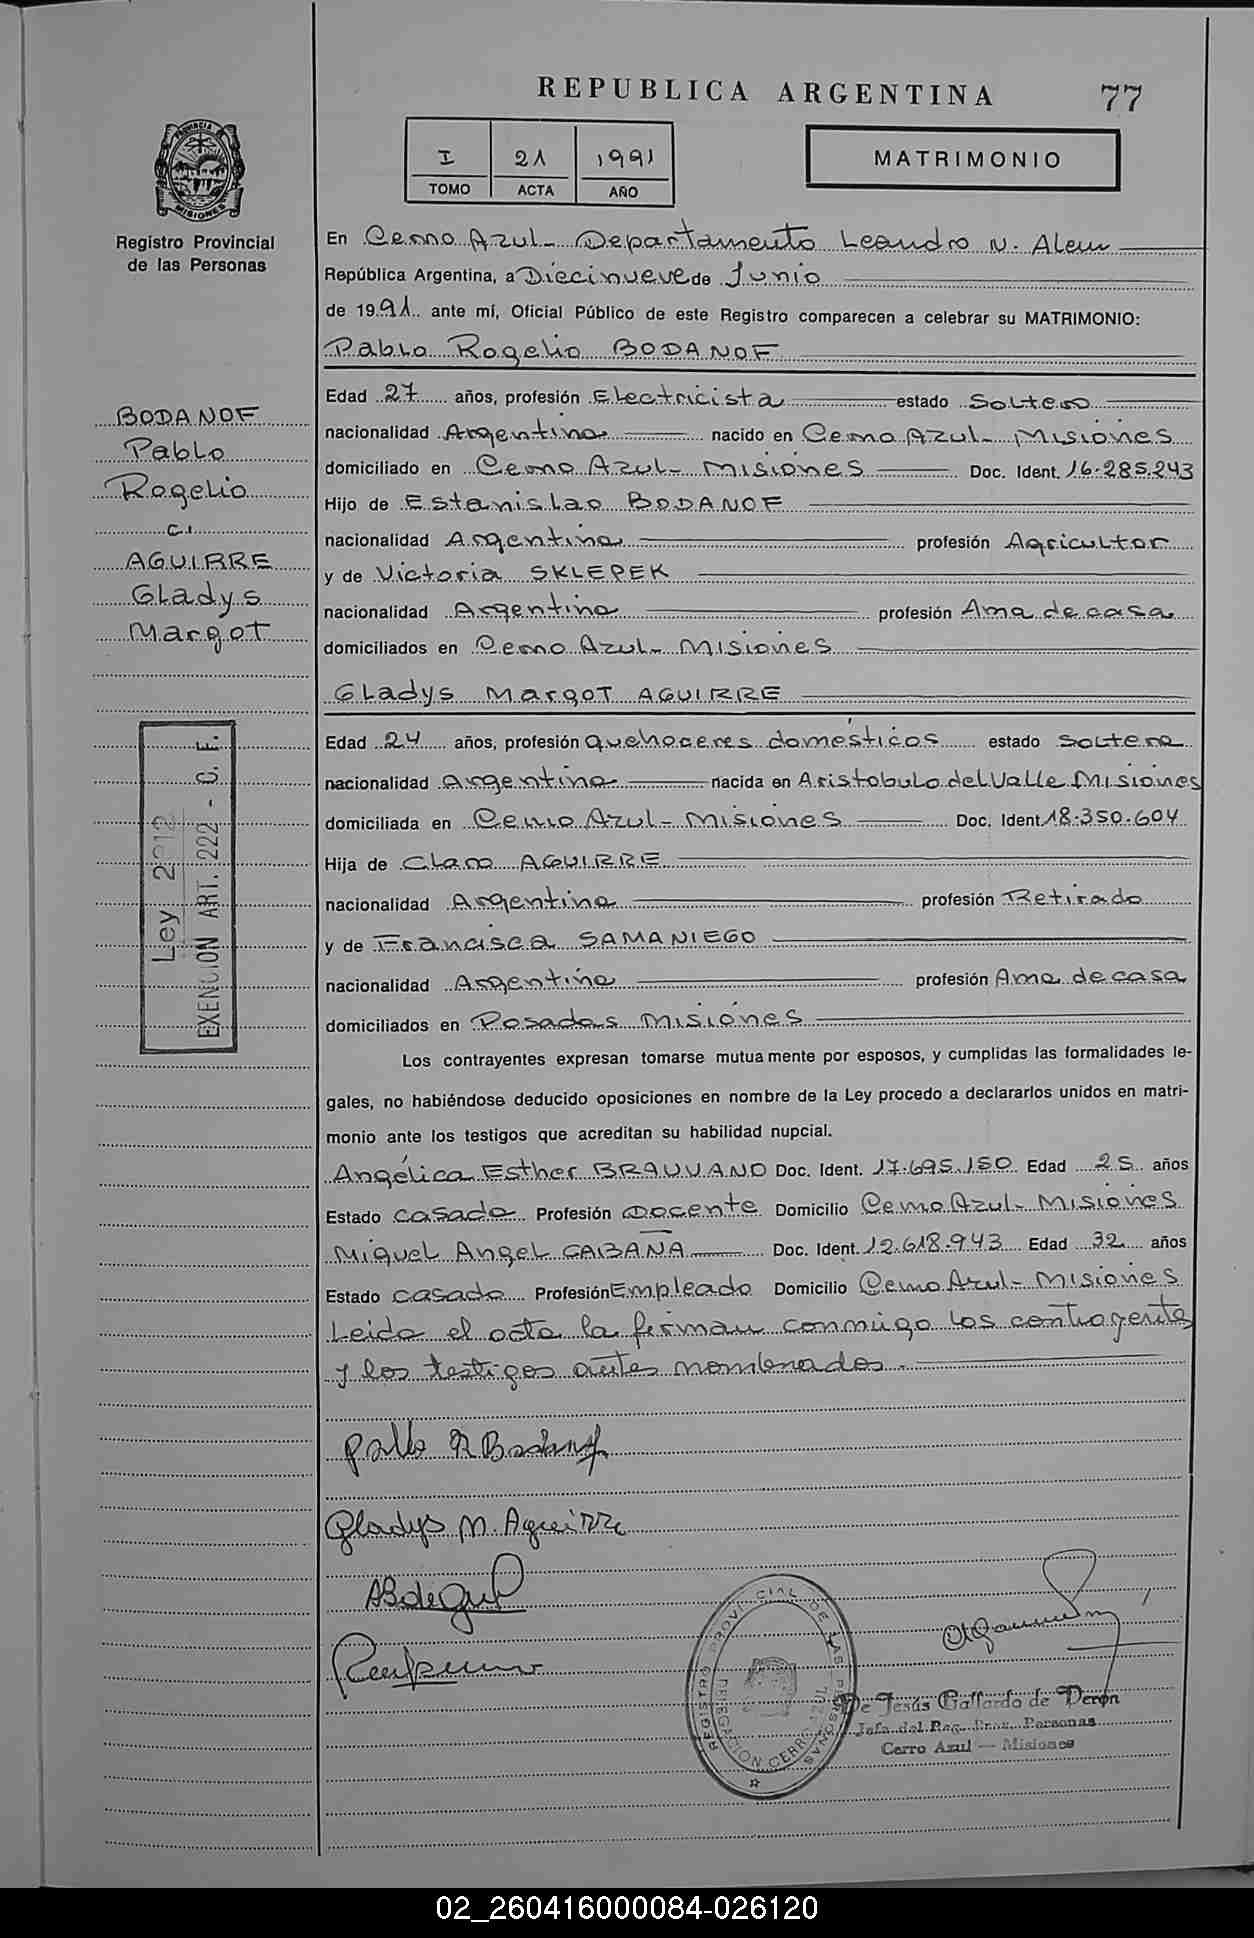 REPUBLICA ARGENTINA
77
I
21
1991
TOMO
ACTA
AÑO
MATRIMONIO
PROVINCIA DE
MISIONES
Registro Provincial
de las Personas
En Cerro Azul - Departamento Leandro N. Alem
República Argentina, a Diecinueve de Junio
de 1991 ante mí, Oficial Público de este Registro comparecen a celebrar su MATRIMONIO:
Pablo Rogelio BODANOF
Edad 27 años, profesión Electricista estado Soltero
nacionalidad Argentino nacido en Cerro Azul - Misiones
domiciliado en Cerro Azul - Misiones Doc. Ident. 16.285.243
Hijo de Estanislao BODANOF
nacionalidad Argentina profesión Agricultor
y de Victoria SKLEPEK
nacionalidad Argentina profesión Ama de casa
domiciliados en Cerro Azul - Misiones
Gladys Margot AGUIRRE
Edad 24 años, profesión quehaceres domésticos estado Soltera
nacionalidad Argentina nacida en Aristobulo del Valle Misiones
domiciliada en Cerro Azul - Misiones Doc. Ident. 18.350.604
Hija de Claro AGUIRRE
nacionalidad Argentina profesión Retirado
y de Francisca SAMANIEGO
nacionalidad Argentina profesión Ama de casa
domiciliados en Posadas Misiones
Los contrayentes expresan tomarse mutuamente por esposos, y cumplidas las formalidades le-
gales, no habiéndose deducido oposiciones en nombre de la Ley procedo a declararlos unidos en matri-
monio ante los testigos que acreditan su habilidad nupcial.
Angélica Esther BRAUVAND Doc. Ident. 17.695.150 Edad 25 años
Estado casada Profesión Docente Domicilio Cerro Azul - Misiones
Miguel Angel CABAÑA Doc. Ident. 12.618.943 Edad 32 años
Estado casado Profesión Empleado Domicilio Cerro Azul - Misiones
Leida el acta la firman conmigo los contrayentes
y los testigos antes nombrados.
BODANOF
Pablo
Rogelio
c.
AGUIRRE
Gladys
Margot
Ley 2212
EXENCION ART. 222 - C. F.
Pablo R Bodanof
Gladys M. Aguirre
REGISTRO PROVINCIAL DE LAS PERSONAS
DELEGACION CERRO AZUL
De Jesús Gallardo de Verón
Jefa del Reg. Prov. Personas
Cerro Azul — Misiones
02_260416000084-026120